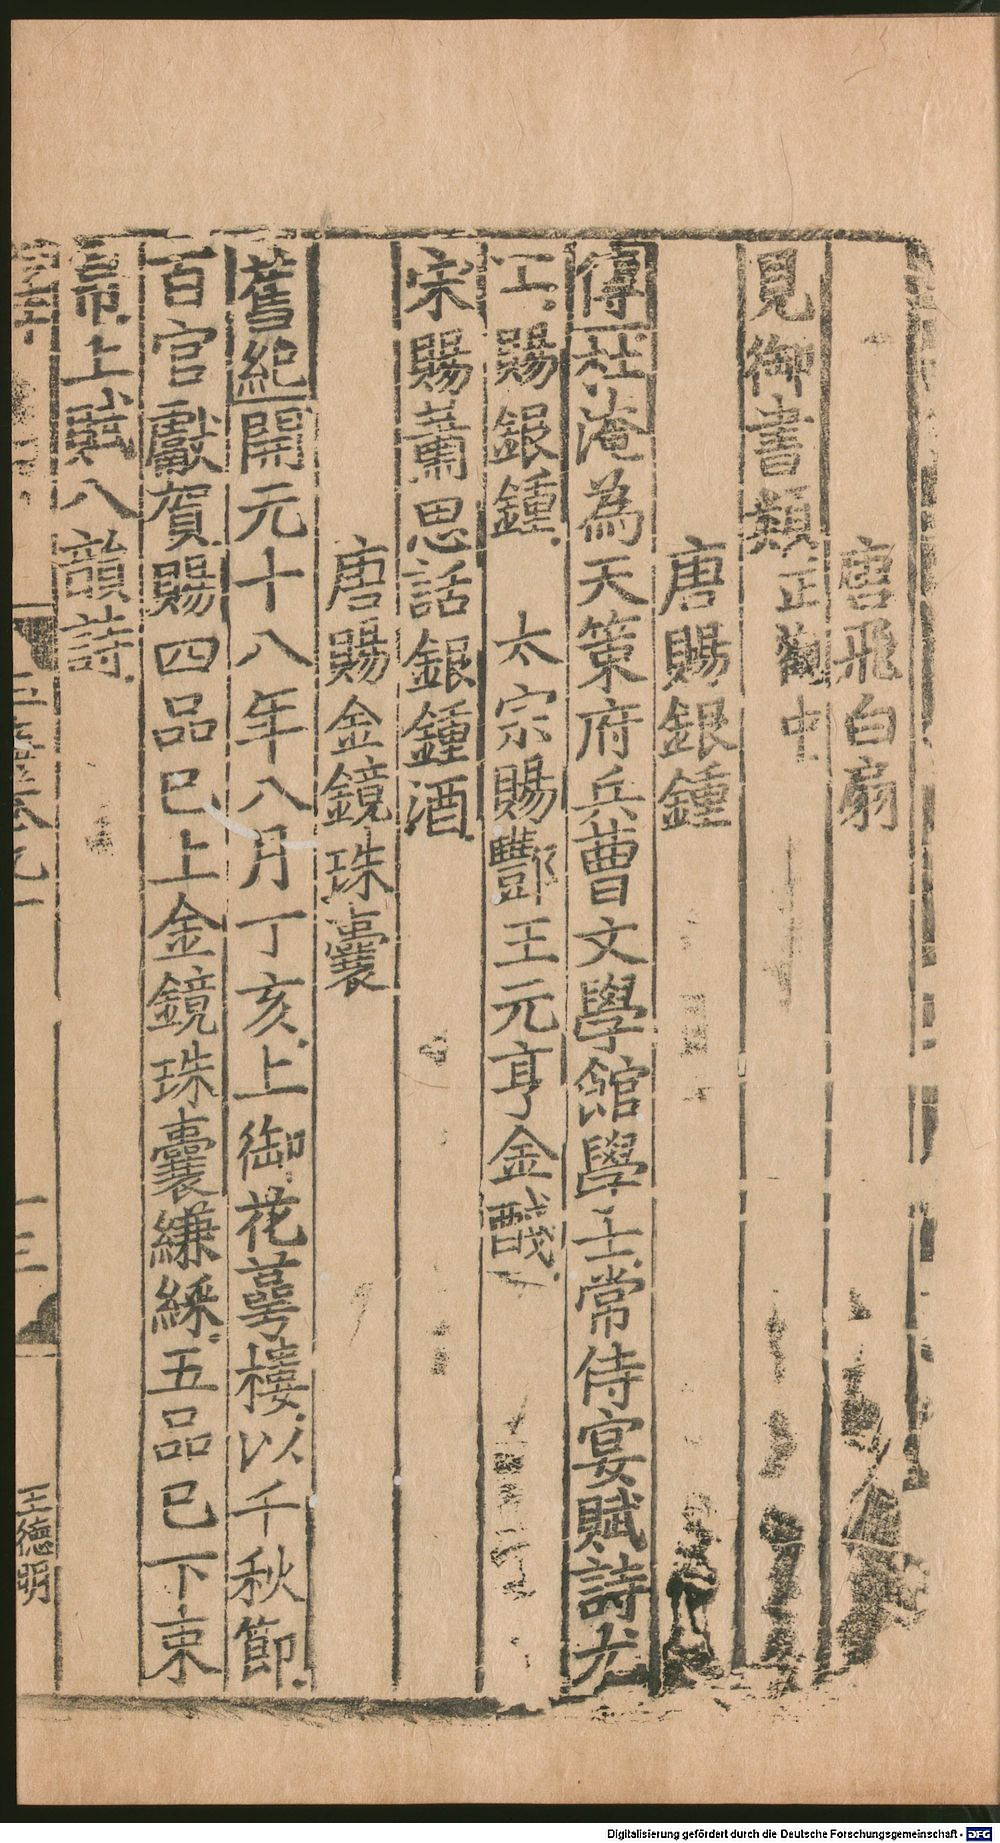 唐飛白扇
見御書類正觀中
唐賜銀鍾
傳杜淹為天策府兵曹文學館學士常侍宴賦詩尤
工賜銀鍾 太宗賜酆王元亨金醆
宋賜蕭思話銀鍾酒
唐賜金鏡珠囊
舊紀開元十八年八月丁亥上御花萼樓以千秋節
百官獻賀賜四品已上金鏡珠囊縑綵五品已下束
帛上賦八韻詩
王德明
Digitalisierung gefördert durch die Deutsche Forschungsgemeinschaft - DFG